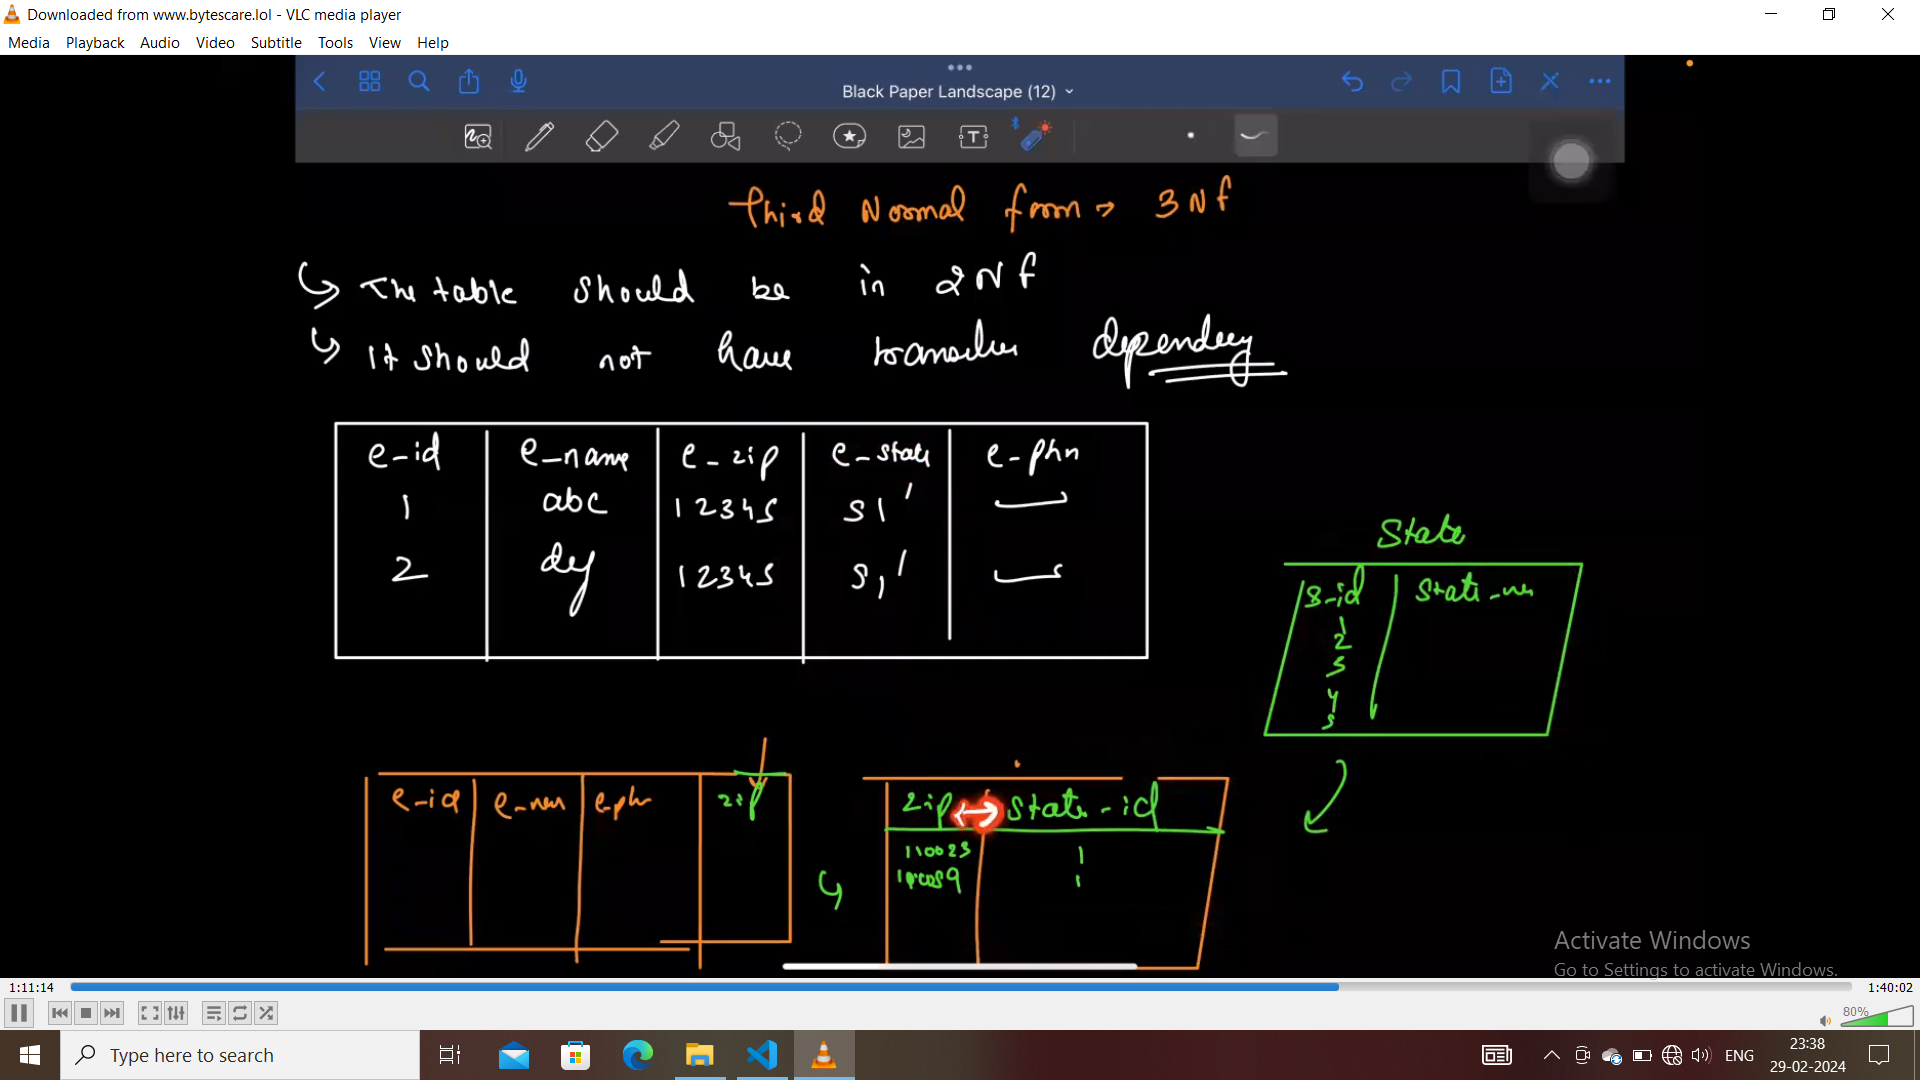 Downloaded from www.bytescare.lol - VLC media player
Media Playback Audio Video Subtitle Tools View Help
Black Paper Landscape (12)
Third Normal form → 3Nf
↳ The table should be in 2Nf
↳ It should not have dependency
e-id e-name e-zip e-state e-phn
1 abc 12345 S1
2 12345 S1
State
s-id
1
2
3
4
5
e-id zip
zip ↔ State-id
110023 1
1
Activate Windows
Go to Settings to activate Windows.
1:11:14 1:40:02
80%
Type here to search
ENG
23:38
29-02-2024